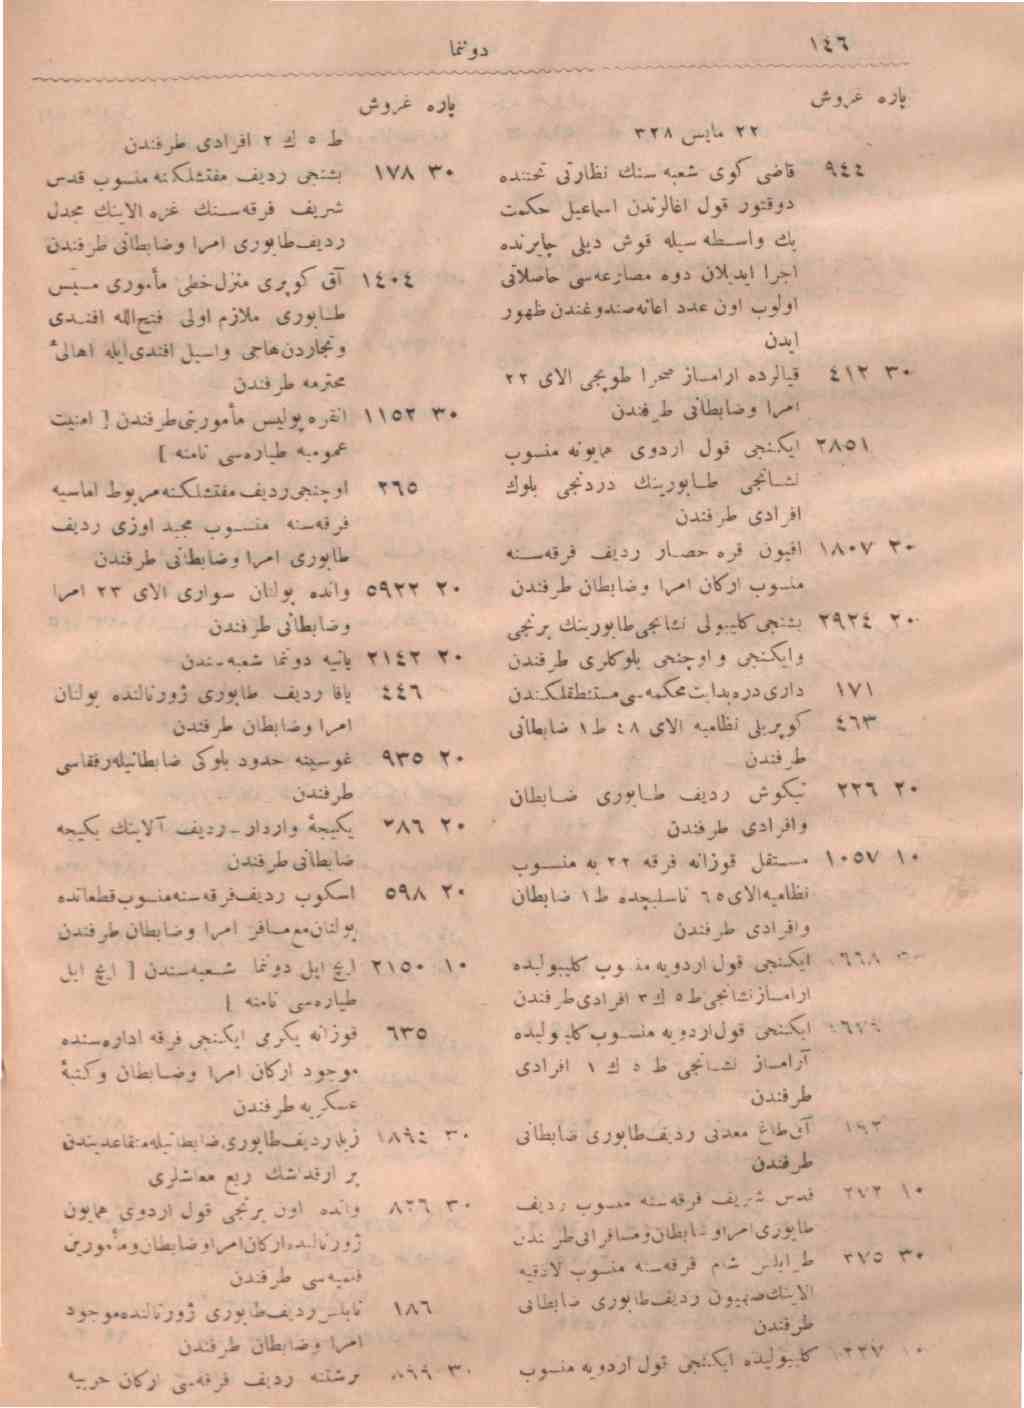 ١٤٦
دوننما
پاره غروش
٢٢ مايس ٣٢٨
٩٤٤ قاضى كوى شعبه سنك نظارتى تحتنده
دوقتور قول اغالرندن اسماعيل حكمت
بك واسطه سيله قوش ديلى چايرنده
اجرا ايديلان دوه مصارعه‌سى حاصلاتى
اولوب اون عدد اعانه صندوغندن ظهور
ايدن
٣٠ ٤١٢ قيالرده ارامساز صحرا طوپجى الاى ٢٢
امرا وضابطانى طرفندن
٢٨٥١ ايكنجى قول اردوى همايونه منسوب
نشانجى طابورينك دردنجى بلوك
افرادى طرفندن
٣٠ ١٨٠٧ افيون قره حصار رديف فرقه‌سنه
منسوب اركان امرا وضابطان طرفندن
٢٠ ٢٩٢٤ بشنجى كليبولى نشانجى طابورينك برنجى
وايكنجى و اوچنجى بلوكلرى طرفندن
١٧١ دارى دره بدايت محكمه‌سى مستنطقلكندن
٤٦٣ كوپريلى نظاميه الاى ٤٨ ط ١ ضابطانى
طرفندن
٢٠ ٢٢٦ تيكوش رديف طابورى ضابطان
وافرادى طرفندن
١٠ ١٠٥٧ مستقل قوزانه فرقه ٢٢ يه منسوب
نظاميه الاى ٦٥ ناسليچده ط ١ ضابطان
وافرادى طرفندن
٦٦٨ ايكنجى قول اردويه منسوب كليبوليده
ارامساز نشانجى ط ٥ ك ٣ افرادى طرفندن
ايكنجى قول اردويه منسوب كليبوليده
آرامساز نشانجى ط ٥ ك ١ افرادى
طرفندن
١٩٢ آق طاغ معدنى رديف طابورى ضابطانى
طرفندن
١٠ ٢٧٢ قدس شريف فرقه‌سنه منسوب رديف
طابورى امرا وضابطان ومسافرانى طرفندن
٣٠ ٣٧٥ طرابلس شام فرقه‌سنه منسوب لاذقيه
الاينك صهيون رديف طابورى ضابطانى
طرفندن
١٠ كليبوليده ايكنجى قول اردويه منسوب
پاره غروش
ط ٥ ك ٢ افرادى طرفندن
٣٠ ١٧٨ بشنجى رديف مفتشلكنه منسوب قدس
شريف فرقه‌سنك غزه الاينك مجدل
رديف طابورى امرا وضابطانى طرفندن
١٤٠٤ آق كوپرى منزل خطى مأمورى مسيس
طابورى ملازم اولى فتح الله افندى
وتجاردن حاجى واسيل افندى ايله اهالئ
محترمه طرفندن
٣٠ ١١٥٢ انقره پوليس مأموريتى طرفندن [ امنيت
عموميه طياره‌سى نامنه ]
٢٦٥ اوچنجى رديف مفتشلكنه مربوط اماسيه
فرقه‌سنه منسوب مجيد اوزى رديف
طابورى امرا وضابطانى طرفندن
٢٠ ٥٩٢٢ وانده بولنان سوارى الاى ٢٣ امرا
وضابطانى طرفندن
٢٠ ٢١٤٢ يانيه دوننما شعبه‌سندن
٤٤٦ يافا رديف طابورى ژورنالنده بولنان
امرا وضابطان طرفندن
٢٠ ٩٣٥ غوسينه حدود بلوكى ضابطانيله رفقاسى
طرفندن
٢٠ ٣٨٦ يكيجهٔ واردار رديف آلاينك يكيجه
ضابطانى طرفندن
٢٠ ٥٩٨ اسكوب رديف فرقه‌سنه منسوب قطعاتده
بولنان مع مسافر امرا وضابطان طرفندن
١٠ ٢١٥٠ ايچ ايل دوننما شعبه‌سندن [ ايچ ايل
طياره‌سى نامنه ]
٦٣٥ قوزانه يكرمى ايكنجى فرقه اداره‌سنده
موجود اركان امرا وضابطان وكتبهٔ
عسكريه طرفندن
٣٠ ١٨٩٤ زيله رديف طابورى ضابطانيله متقاعديندن
بر ارقداشك ربع معاشلرى
٣٠ ٨٢٦ وانده اون برنجى قول اردوى همايون
ژورنالنده اركان امرا وضابطان ومأمورين
فنيه‌سى طرفندن
١٨٦ نابلس رديف طابورى ژورنالنده موجود
امرا وضابطان طرفندن
٣٠ ٨٩٩ پرشتنه رديف فرقه‌سى اركان حربيه